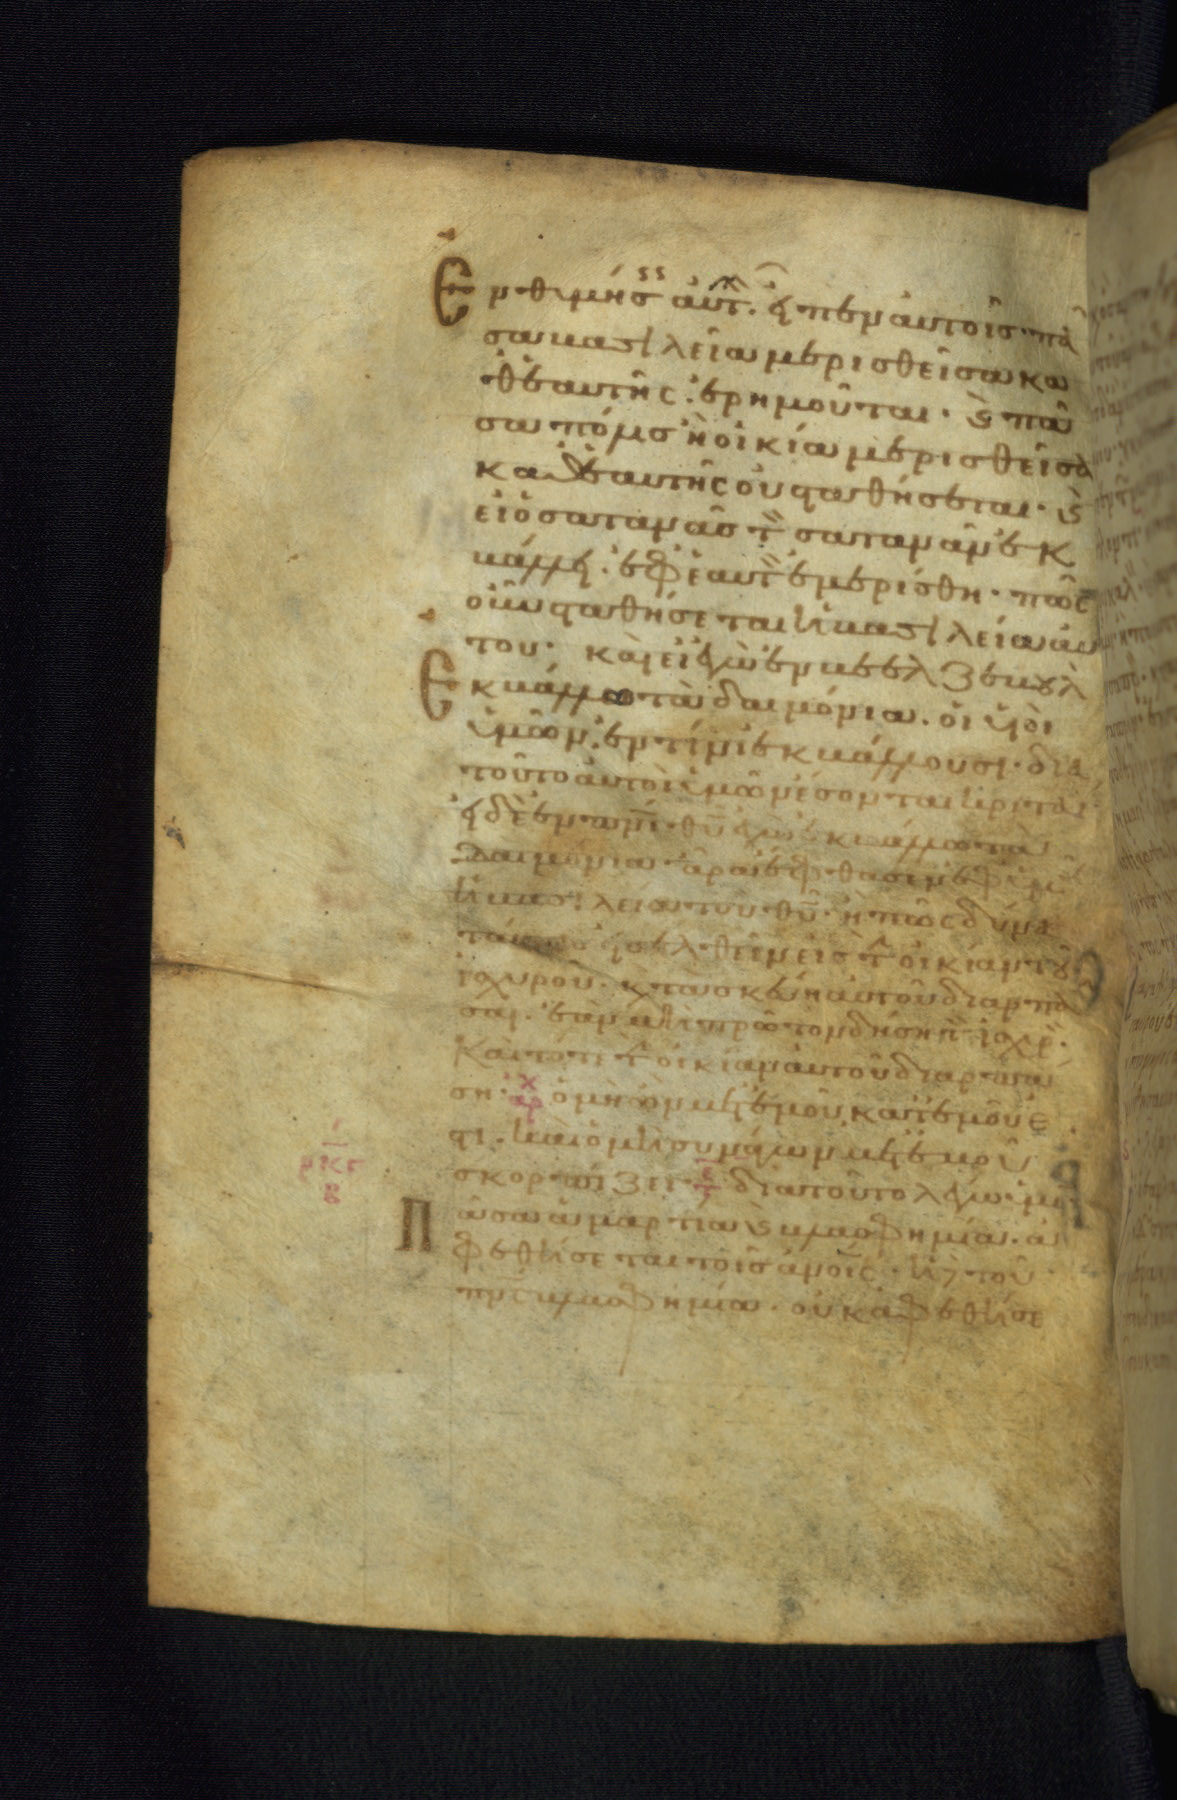 Ἐνθυμήσ αὐτ. εἶπεν αὐτοῖς· πᾶ
σα βασιλεία μερισθεῖσα κα
θ ἑαυτῆς ἐρημοῦται· ϗ πᾶ
σα πόλισ ἢ οἰκία μερισθεῖσα
καθ ἑαυτῆς οὐ σταθήσεται· ϗ
εἰ ὁ σατανᾶσ τ σατανᾶν ἐκ
βάλλει. ἐφ ἑαυτ ἐμερίσθη· πῶς
οὖν σταθήσεται ἡ βασιλεία αὐ
του· καὶ εἰ ἐγὼ ἐν βεελζεβοὺλ
ἐκβάλλω τὰ δαιμόνια. οἱ υἱοὶ
ὑμῶν ἐν τίνι ἐκβάλλουσι· δια
τοῦτο αὐτοὶ ὑμῶν ἔσονται κριταί·
εἰ δὲ ἐν πνι θυ ἐγὼ ἐκβάλλω τὰ
δαιμόνια ἄρα ἔφθασεν ἐφ ὑμ
ἡ βασιλεία του θυ· ἢ πῶς δύνα
ται τισ εἰσελθεῖν εἰς τ οἰκίαν τοῦ
ἰσχυροῦ. κ τα σκεύη αὐτοῦ διαρπά
σαι. ἐὰν μὴ πρῶτον δήσῃ τ ἰσχρ·
Και τότε τ οἰκίαν αὐτοῦ διαρπά
σῃ· ὁ μὴ ὢν μετ ἐμοῦ κατ ἐμοῦ ἐ
στι. καὶ ὁ μὴ συνάγων μετ ἐμοῦ
σκορπίζει· διατοῦτο λέγω ὑμι
Πᾶσα ἁμαρτία ϗ βλασφημία. ἀ
φεθήσεται τοῖσ ἀνοις· ἡ δε τοῦ
πνς βλασφημία. οὐκ ἀφεθήσε